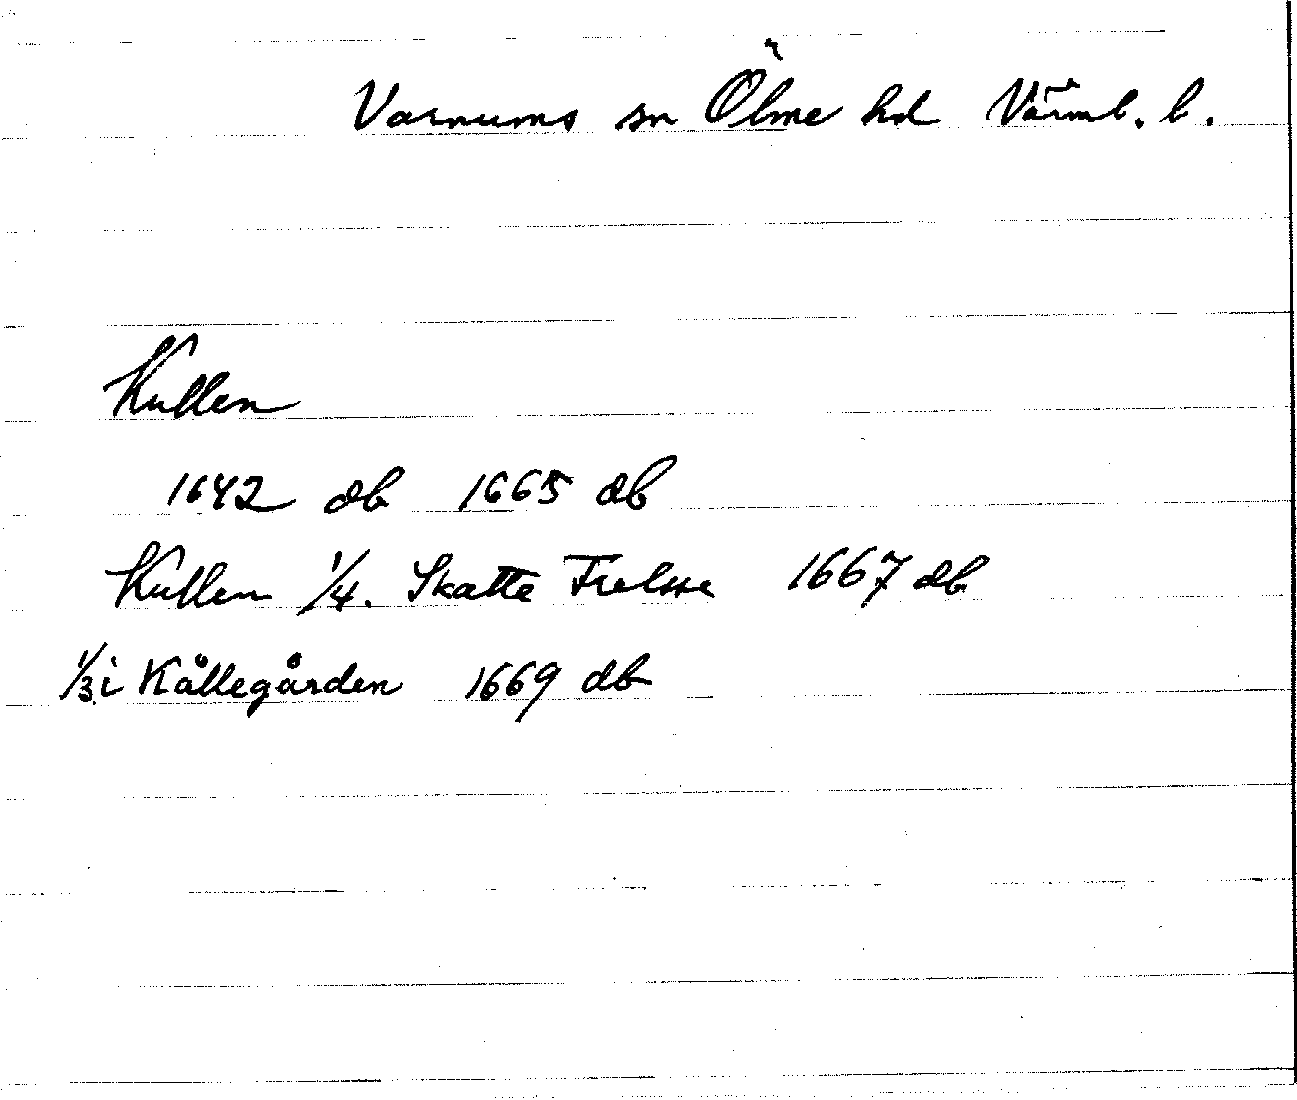 Varnums sn Ölme hd Värml. l.
Kullen
1642 db 1665 db
Kullen 1/4. Skatte Frelsse 1667 db
1/3 i Kållegården 1669 db